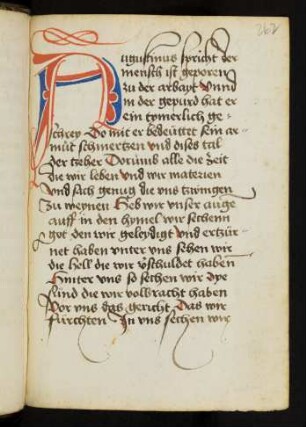 262
Augustinus spricht der
mensch ist geporen
zu der arbayt Vnnd
in der gepurd hat er
ein ıomerlich ge-
schrey Do mit er bedeuttet sein ar-
mut schmertzen vnd dises tal
der zeher Dorumb alle die zeit
die wir leben vnd wir materien
vnd sach genug die vns twingen
zu weynen Heb wir vnser auge
auff in den hymel wir sechenn
got den wir geleydigt vnd ertzur-
net haben vnter vns sehen wir
die hell die wir v̈schuldet haben
Hinter vns so sechen wir dye
sund die wir volbracht haben
Vor vns das gericht Das wir
furchten In vns sechen wir